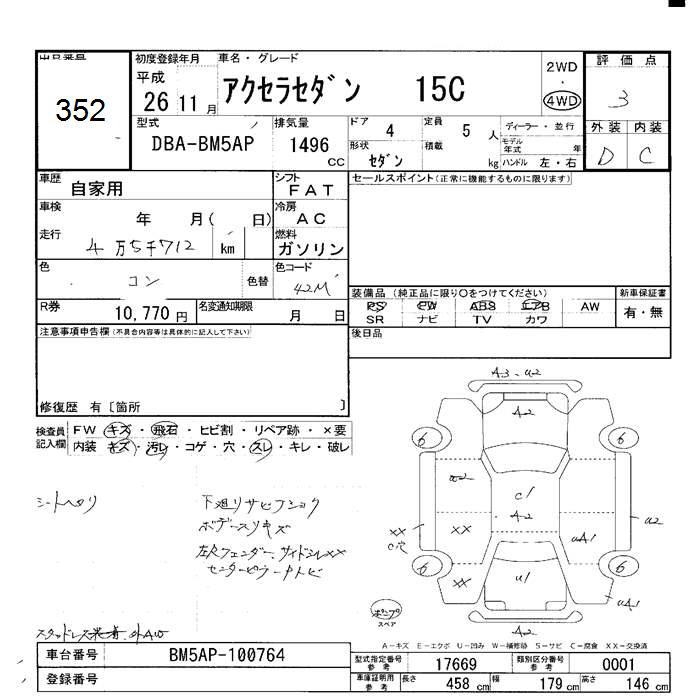 出品番号 352
初度登録年月 平成 26 11 月
車名・グレード
アクセラセダン 15C
2WD ・ 4WD
評価点
3
外装 内装
D C
型式 DBA-BM5AP
排気量 1496 CC
ドア 4
定員 5 人
ディーラー・並行
形状 セダン
積載 kg
モデル年式 年
ハンドル 左・右
車歴 自家用
シフト FAT
セールスポイント(正常に機能するものに限ります)
車検 年 月( 日)
冷房 AC
走行 4万5千712 km
燃料 ガソリン
色 コン
色替
色コード 42M
R券 10,770 円
名変通知期限 月 日
装備品 (純正品に限り○をつけてください)
PS PW ABS エアB AW
SR ナビ TV カワ
新車保証書
有・無
後日品
注意事項申告欄(不具合内容等は具体的に記入して下さい)
修復歴 有〔箇所 〕
検査員記入欄
FW キズ・飛石・ヒビ割・リペア跡・×要
内装 キズ・汚レ・コゲ・穴・スレ・キレ・破レ
シートヘタリ
下廻りサビフショク
ボデースリキズ
左Rフェンダー、サイドシルXX
センターピラー
A3 . U2
A2
6 6
U2
C1
A2
XX
XX
C穴
UA1
U2
6 6
XX
U1
UA1
A2
スペア
スタッドレス
A=キズ E=エクボ U=凹み W=補修跡 S=サビ C=腐食 XX=交換済
車台番号 BM5AP-100764
登録番号
型式指定番号 参考 17669
類別区分番号 参考 0001
車庫証明用 参考 長さ 458 cm 幅 179 cm 高さ 146 cm